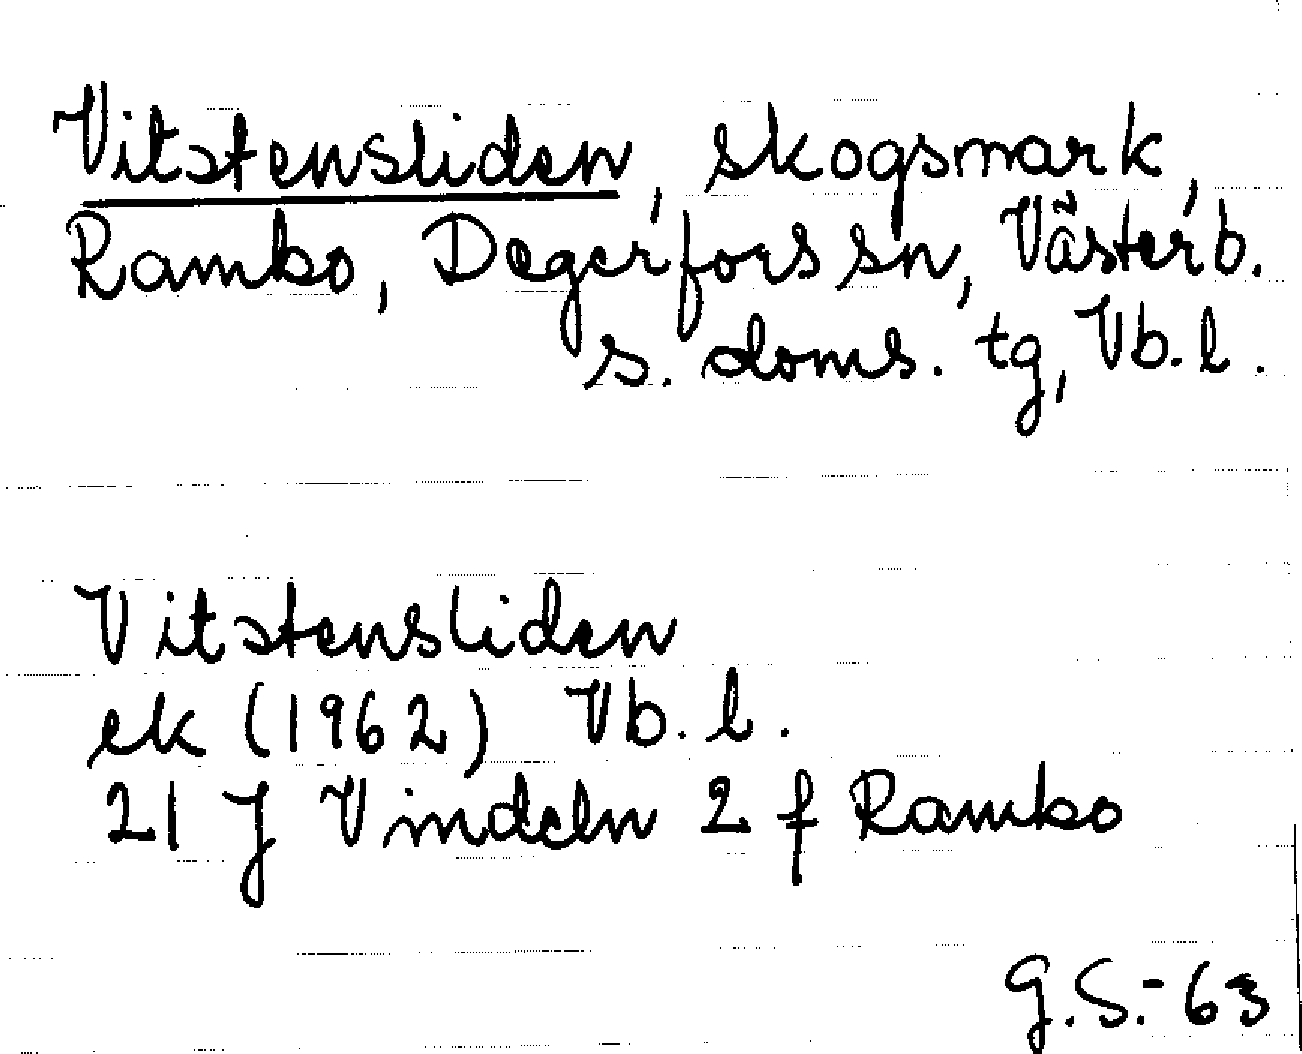 Vitstensliden, skogsmark,
Rambo, Degerfors sn, Västerb.
s. doms. tg, Vb. l.
Vitstensliden
ek (1962) Vb. l.
21 J Vindeln 2 f Rambo
G.S.-63